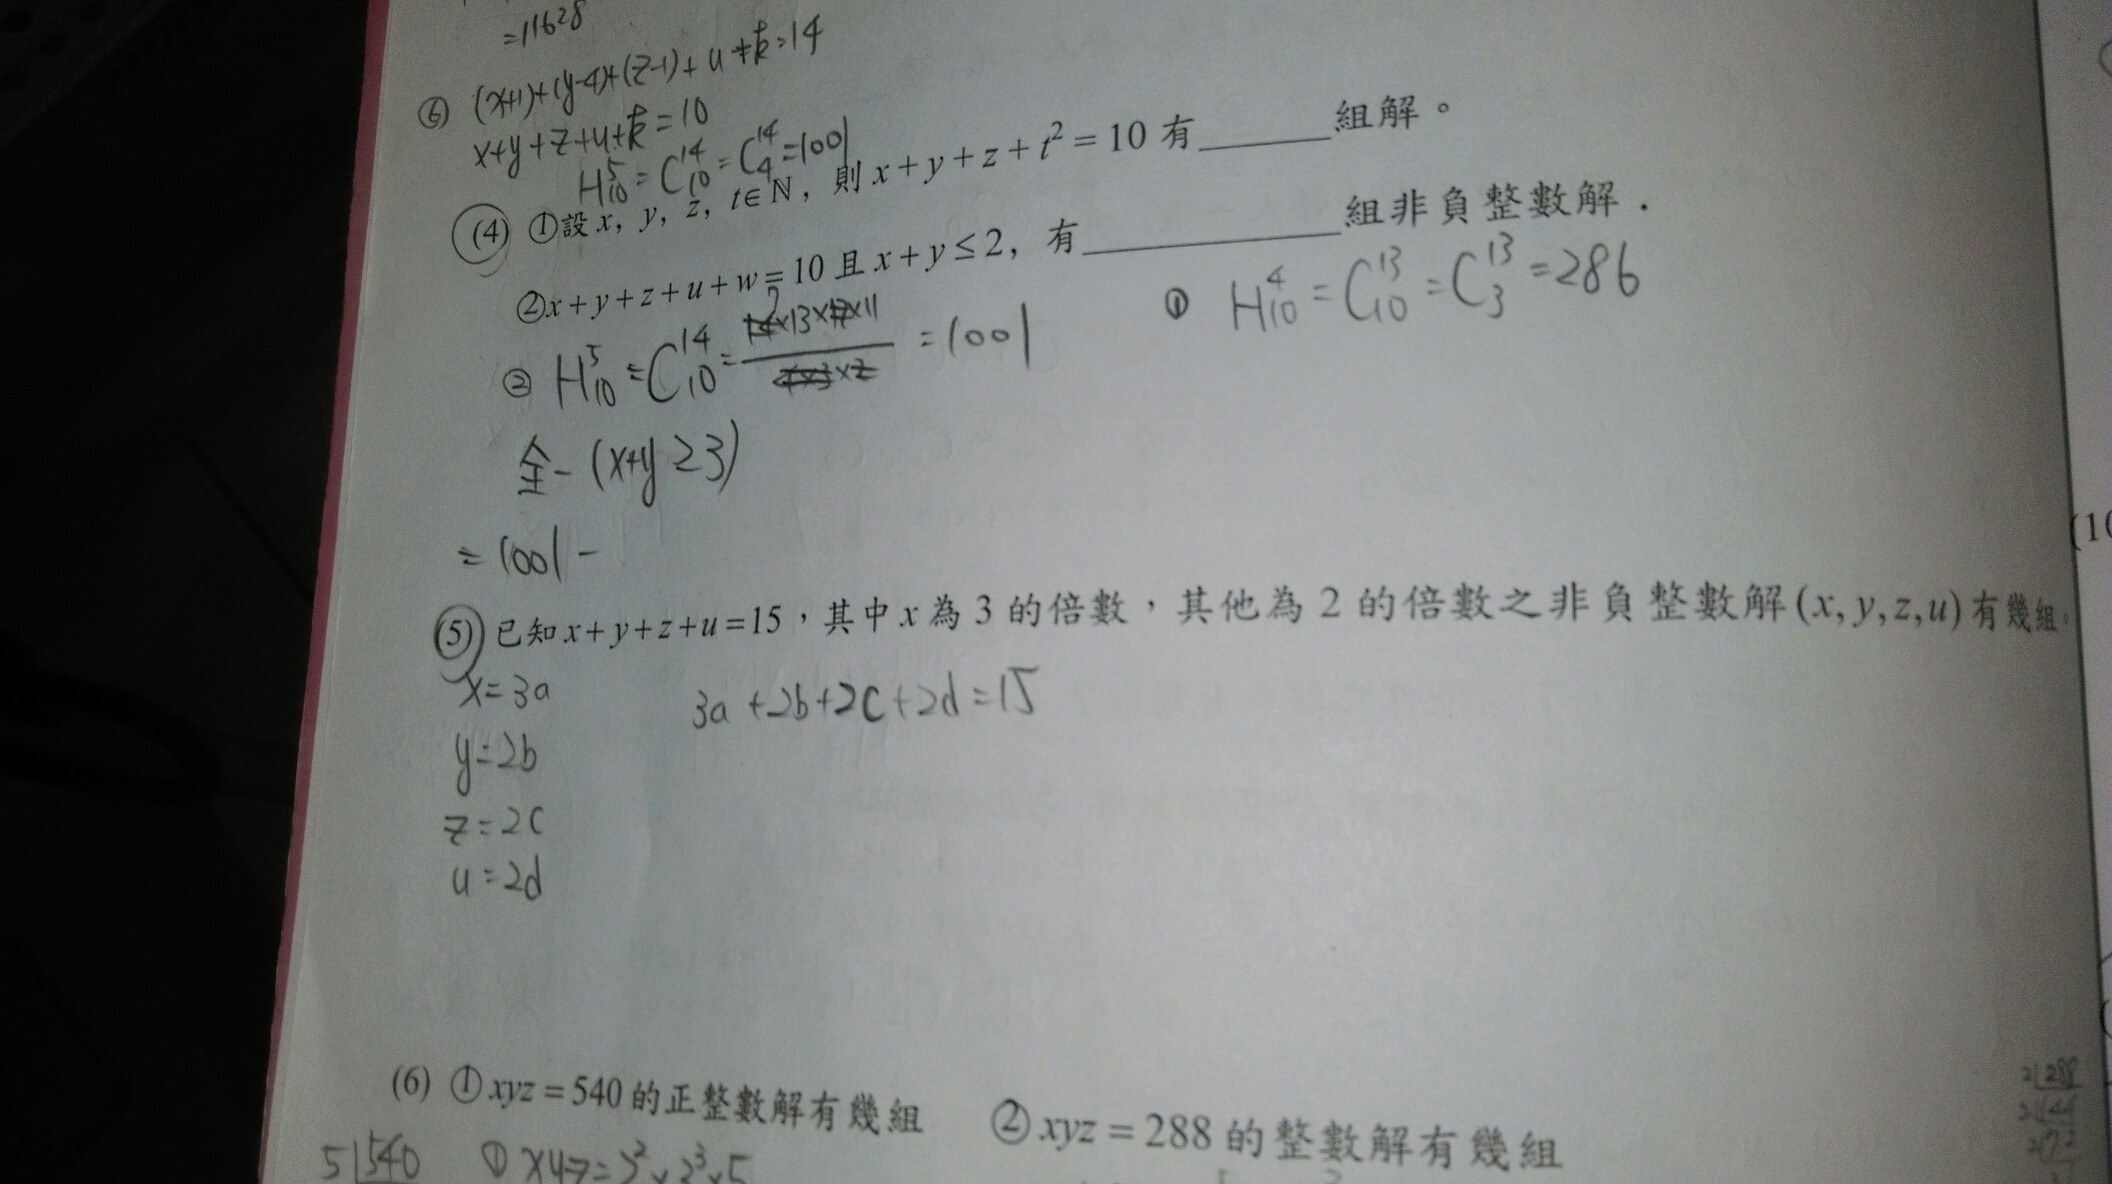 =11628
⑥ (x+1)+(y-4)+(z-1)+u+k=14
x+y+z+u+k=10
H⁵₁₀=C¹⁴₁₀=C¹⁴₄=1001
(4) ①設 x, y, z, t∈N, 則 x+y+z+t²=10 有______組解。
②x+y+z+u+w=10 且 x+y≤2, 有__________組非負整數解.
① H⁴₁₀=C¹³₁₀=C¹³₃=286
② H⁵₁₀=C¹⁴₁₀=14×13×12×11/4×3×2=1001
全-(x+y≥3)
=1001-
(5) 已知x+y+z+u=15,其中x為3的倍數,其他為2的倍數之非負整數解(x,y,z,u)有幾組。
x=3a 3a+2b+2c+2d=15
y=2b
z=2c
u=2d
(6) ①xyz=540的正整數解有幾組 ②xyz=288的整數解有幾組
5|540 ① xyz=2²×3³×5
2|288
2|144
2|72
(10